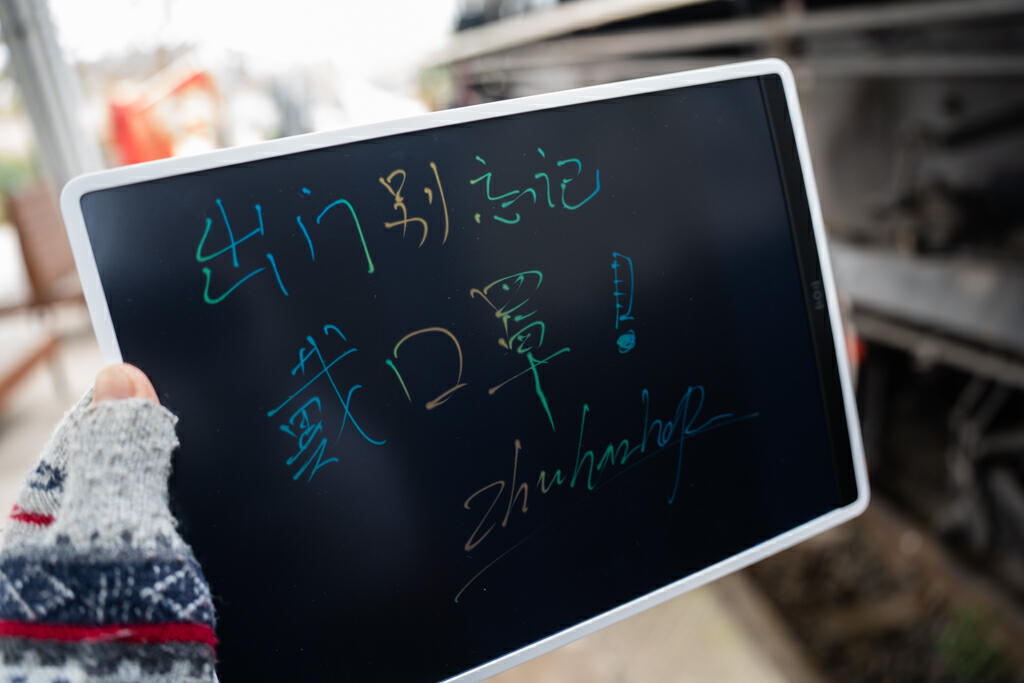 出门别忘记
戴口罩!
zhuhanshop